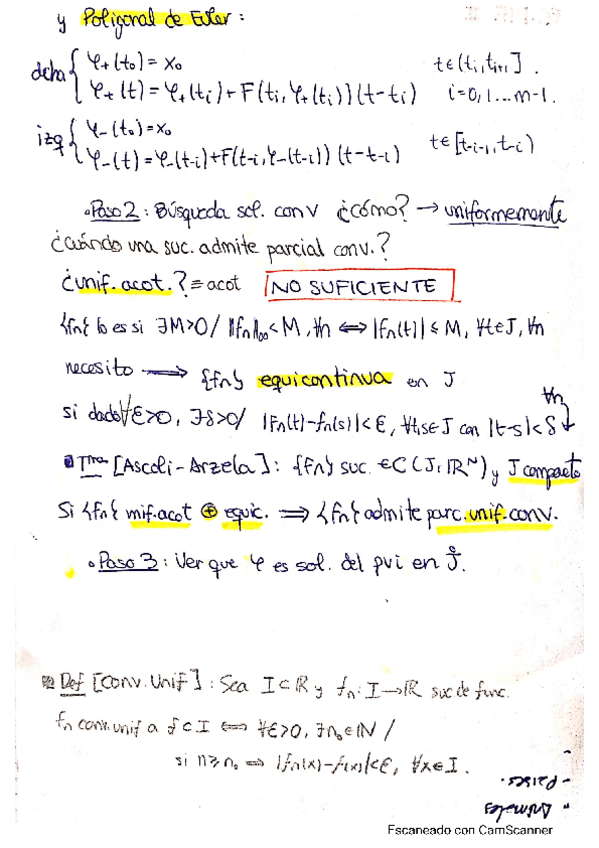 y Poligonal de Euler:
dcha { φ₊(t₀) = x₀
φ₊(t) = φ₊(tᵢ) + F(tᵢ, φ₊(tᵢ))(t-tᵢ) t∈(tᵢ, tᵢ₊₁]. i=0,1...m-1.
izq { φ₋(t₀) = x₀
φ₋(t) = φ₋(t₋ᵢ) + F(t₋ᵢ, φ₋(t₋ᵢ))(t-t₋ᵢ) t∈[t₋ᵢ₋₁, t₋ᵢ)
• Paso 2: Búsqueda sol. conv ¿cómo? → uniformemente
¿Cuándo una suc. admite parcial conv.?
¿unif. acot.? ≡ acot NO SUFICIENTE
{fn} lo es si ∃M>0 / ‖fn‖∞ < M, ∀n ⟺ |fn(t)| ≤ M, ∀t∈J, ∀n
necesito ⟶ {fn} equicontinua en J
si dado ∀ε>0, ∃δ>0 / |fn(t)-fn(s)| < ε, ∀t,s∈J con |t-s| < δ ∀n
Tma [Ascoli-Arzela]: {fn} suc. ∈ C(J, ℝᴺ) y J compacto
Si {fn} unif.acot ⊕ equic. ⟹ {fn} admite parc. unif. conv.
• Paso 3: Ver que φ es sol. del pvi en J̊.
Def [Conv. Unif]: Sea I⊂ℝ y fn: I→ℝ suc de func.
fn conv. unif a f ⊂ I ⟺ ∀ε>0, ∃n₀∈ℕ /
si n≥n₀ ⟹ |fn(x)-f(x)| < ε, ∀x∈I.
- Países.
" Animales
Escaneado con CamScanner